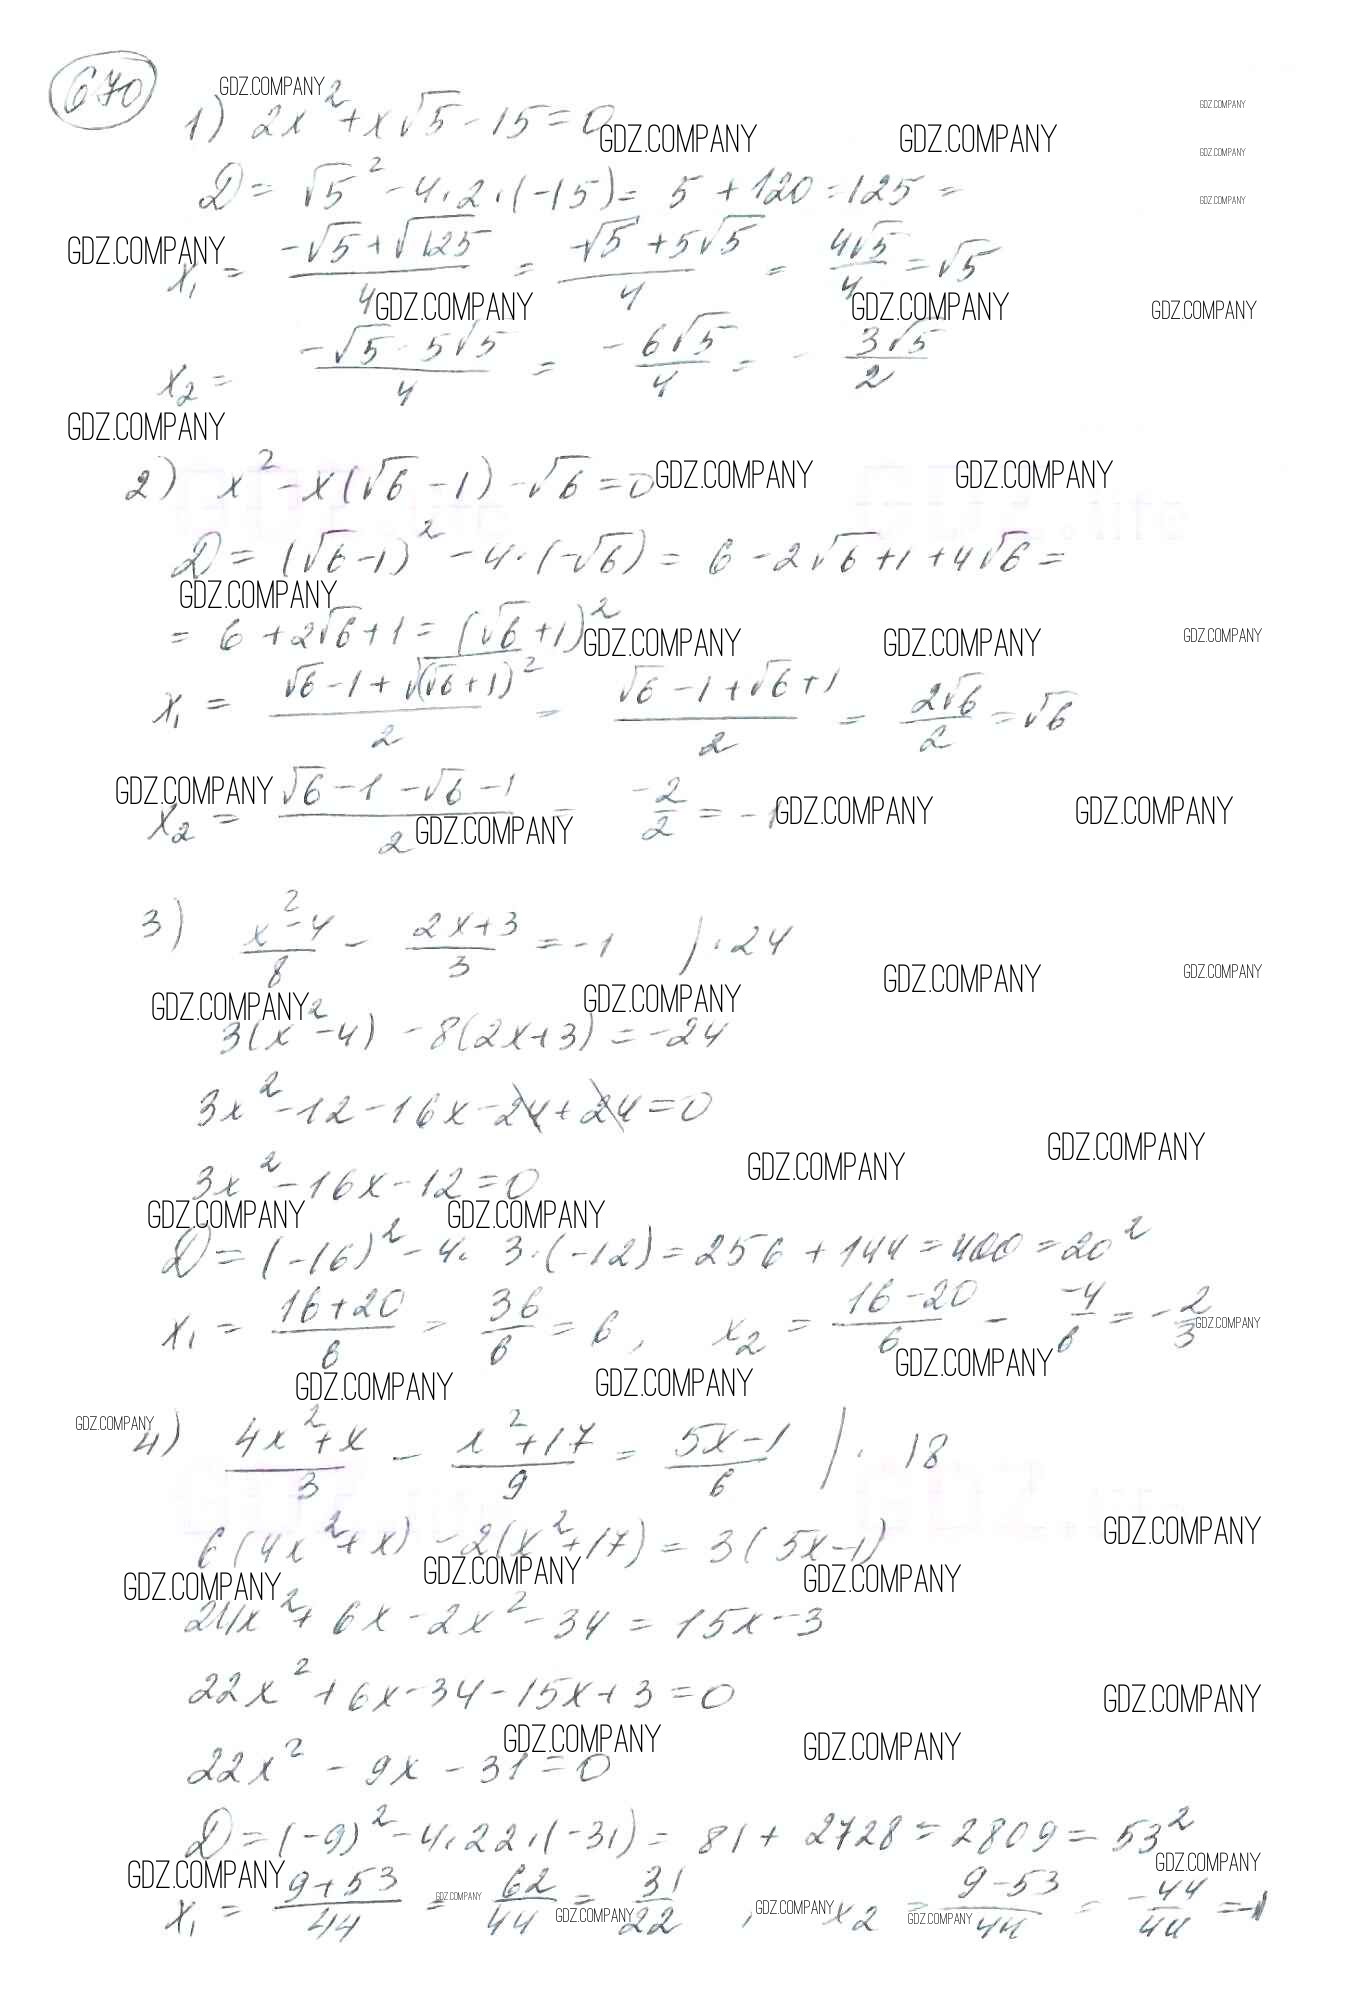 670
GDZ.COMPANY
1) 2x² + x√5 - 15 = 0
GDZ.COMPANY GDZ.COMPANY GDZ.COMPANY
GDZ.COMPANY
D = √5² - 4·2·(-15) = 5 + 120 = 125 =
GDZ.COMPANY
GDZ.COMPANY x₁ = (-√5 + √125)/4 = (-√5 + 5√5)/4 = 4√5/4 = √5
GDZ.COMPANY GDZ.COMPANY GDZ.COMPANY
x₂ = (-√5 - 5√5)/4 = -6√5/4 = -3√5/2
GDZ.COMPANY
2) x² - x(√6 - 1) - √6 = 0 GDZ.COMPANY GDZ.COMPANY
D = (√6-1)² - 4·(-√6) = 6 - 2√6 + 1 + 4√6 =
GDZ.COMPANY
= 6 + 2√6 + 1 = (√6 + 1)² GDZ.COMPANY GDZ.COMPANY GDZ.COMPANY
x₁ = (√6 - 1 + √(√6 + 1)²)/2 = (√6 - 1 + √6 + 1)/2 = 2√6/2 = √6
GDZ.COMPANY x₂ = (√6 - 1 - √6 - 1)/2 = -2/2 = -1 GDZ.COMPANY GDZ.COMPANY
GDZ.COMPANY
3) (x² - 4)/8 - (2x + 3)/3 = -1 ) · 24
GDZ.COMPANY GDZ.COMPANY GDZ.COMPANY GDZ.COMPANY
3(x² - 4) - 8(2x + 3) = -24
3x² - 12 - 16x - 24 + 24 = 0
GDZ.COMPANY GDZ.COMPANY
3x² - 16x - 12 = 0
GDZ.COMPANY GDZ.COMPANY
D = (-16)² - 4·3·(-12) = 256 + 144 = 400 = 20²
x₁ = (16 + 20)/6 = 36/6 = 6, x₂ = (16 - 20)/6 = -4/6 = -2/3 GDZ.COMPANY
GDZ.COMPANY GDZ.COMPANY GDZ.COMPANY
GDZ.COMPANY
4) (4x² + x)/3 - (x² + 17)/9 = (5x - 1)/6 ) · 18
6(4x² + x) - 2(x² + 17) = 3(5x - 1) GDZ.COMPANY
GDZ.COMPANY GDZ.COMPANY GDZ.COMPANY
24x² + 6x - 2x² - 34 = 15x - 3
22x² + 6x - 34 - 15x + 3 = 0 GDZ.COMPANY
GDZ.COMPANY GDZ.COMPANY
22x² - 9x - 31 = 0
D = (-9)² - 4·22·(-31) = 81 + 2728 = 2809 = 53²
GDZ.COMPANY GDZ.COMPANY
x₁ = (9 + 53)/44 = 62/44 = 31/22, x₂ = (9 - 53)/44 = -44/44 = -1
GDZ.COMPANY GDZ.COMPANY GDZ.COMPANY GDZ.COMPANY